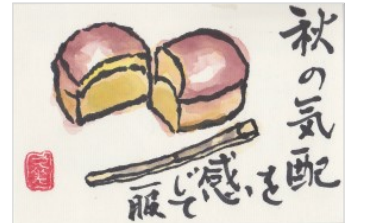 秋の気配
を感
じて
一服